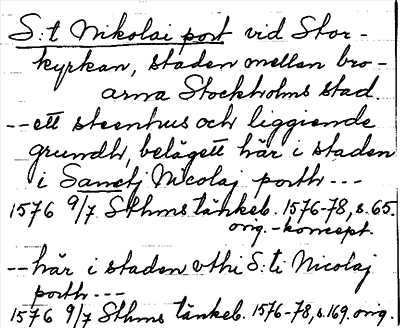 S:t Nikolai port vid Stor-
kyrkan, staden mellan bro-
arna Stockholms stad.
--ett steenhus och liggiende
grundh, belägett här i staden
i Sanctj Nicolaj porth ---
1576 9/7 Sthms tänkeb. 1576-78, s. 65.
orig.-koncept.
--här i staden vthi S:ti Nicolaj
porth ---
1576 9/7 Sthms tänkeb. 1576-78, s. 169. orig.